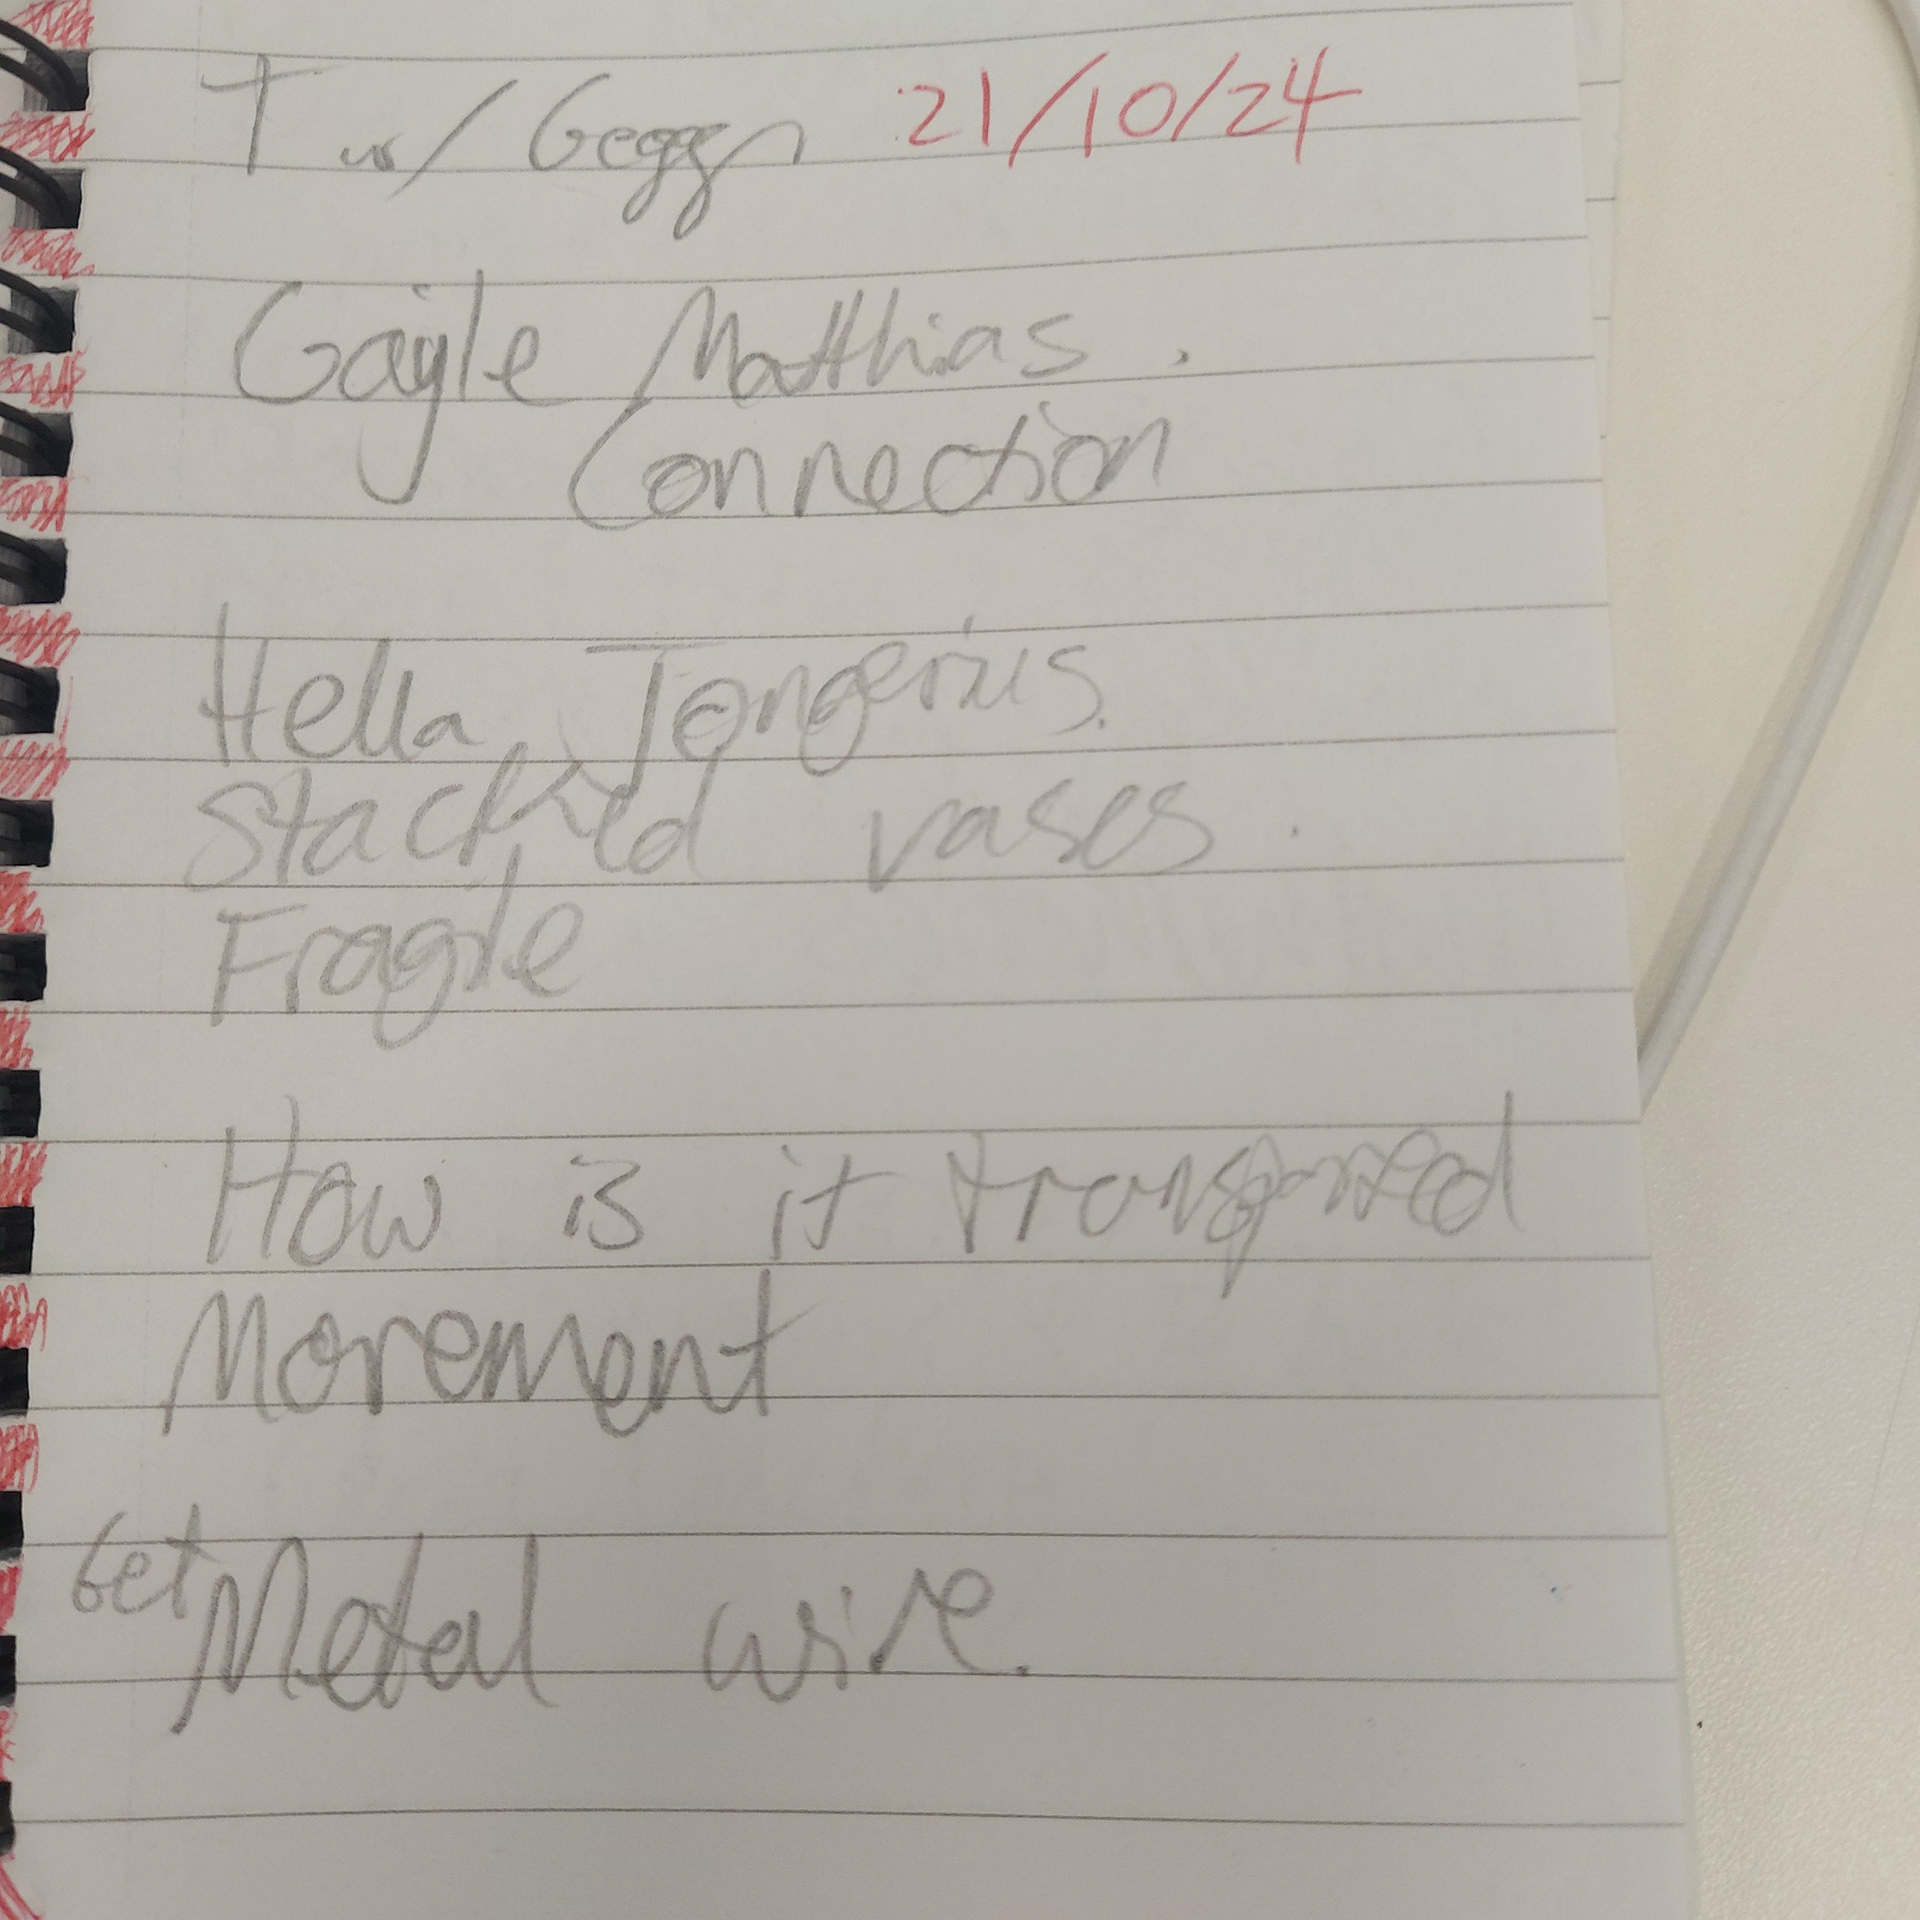 T w/ Geggn 21/10/24
Gayle Matthias.
Connection
Hella Jongerius.
Stacked vases.
Fragile
How is it transported
Movement
Get Metal wire.